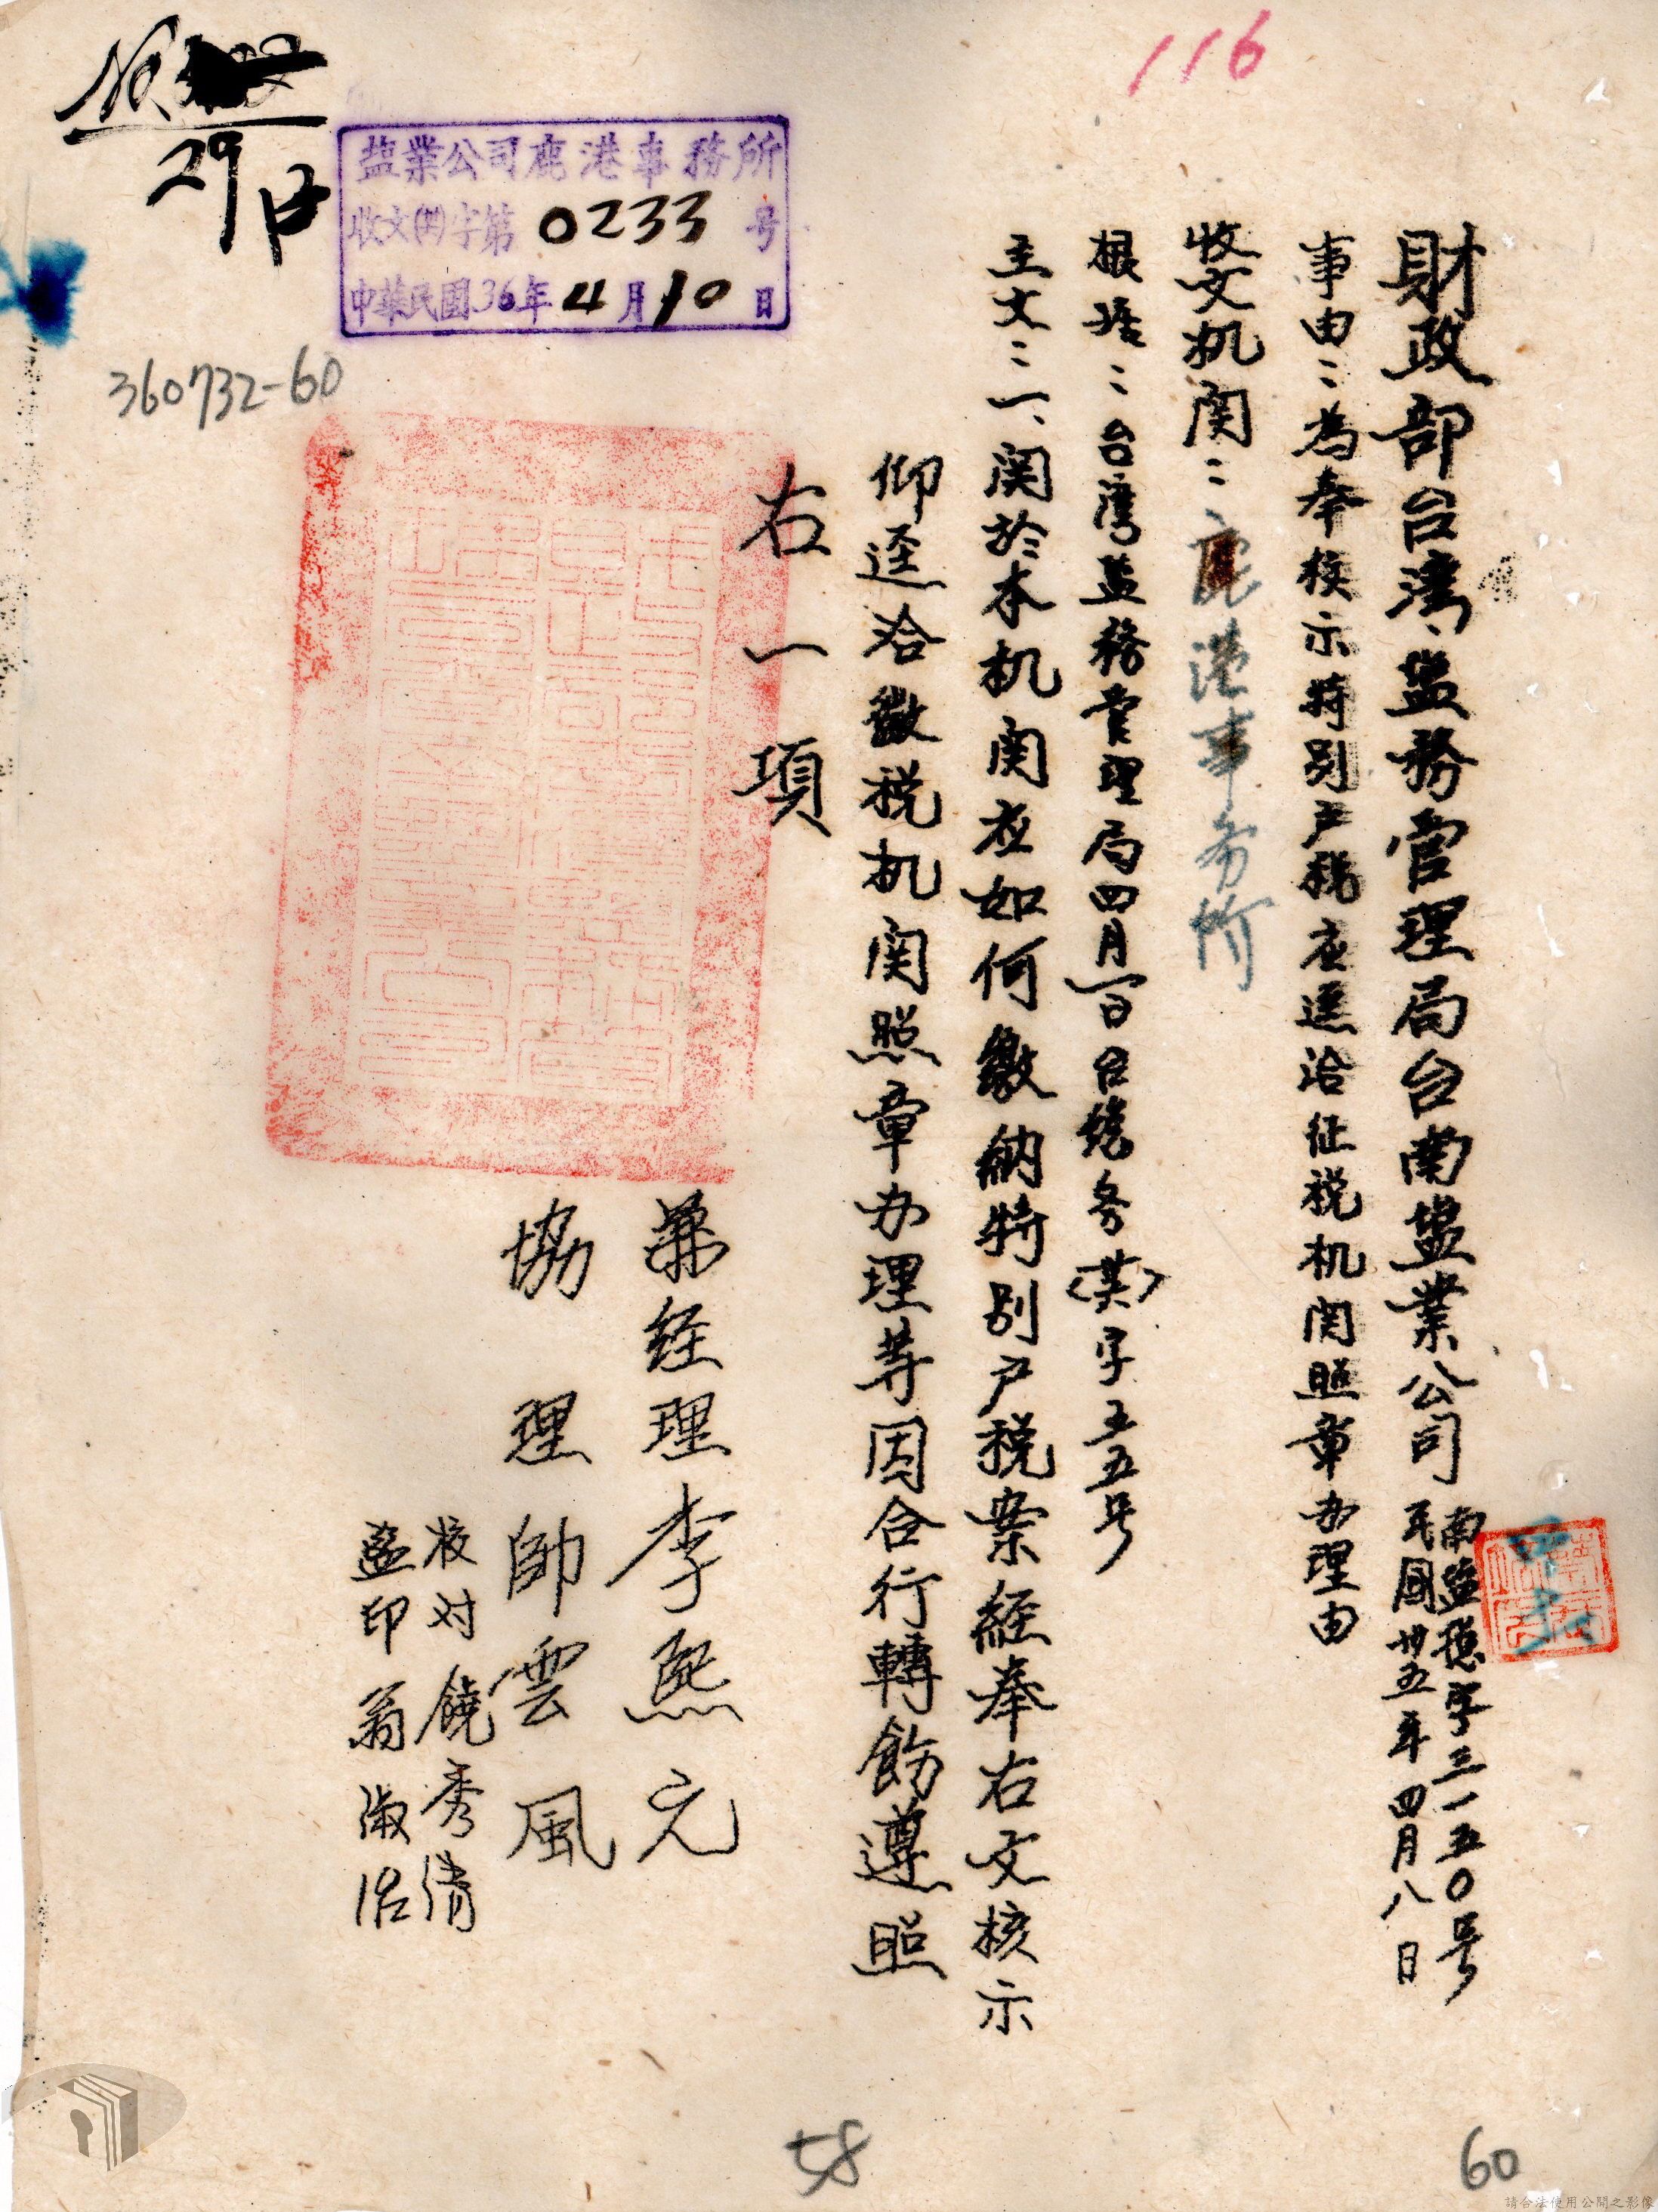 116
财政部台湾盐务管理局台南盐業公司
南盐稳字三一五0号
民国卅五年四月八日
事由：為奉核示特别户税应迳洽征税机関照章办理由
收文机関：鹿港事务所
根据：台湾盐務管理局四月一日台總务(英)字五五号
主文：一、関於本机関应如何繳納特别户税案經奉右文核示
仰迳洽徵税机関照章办理等因合行轉飭遵照
右一項
兼经理李熙元
協理帥雲風
校对饒秀清
盖印翁淑治
盐業公司鹿港事務所
收文()字第0233号
中華民國36年4月10日
No.
29
360732-60
58
60
請合法使用公開之影像